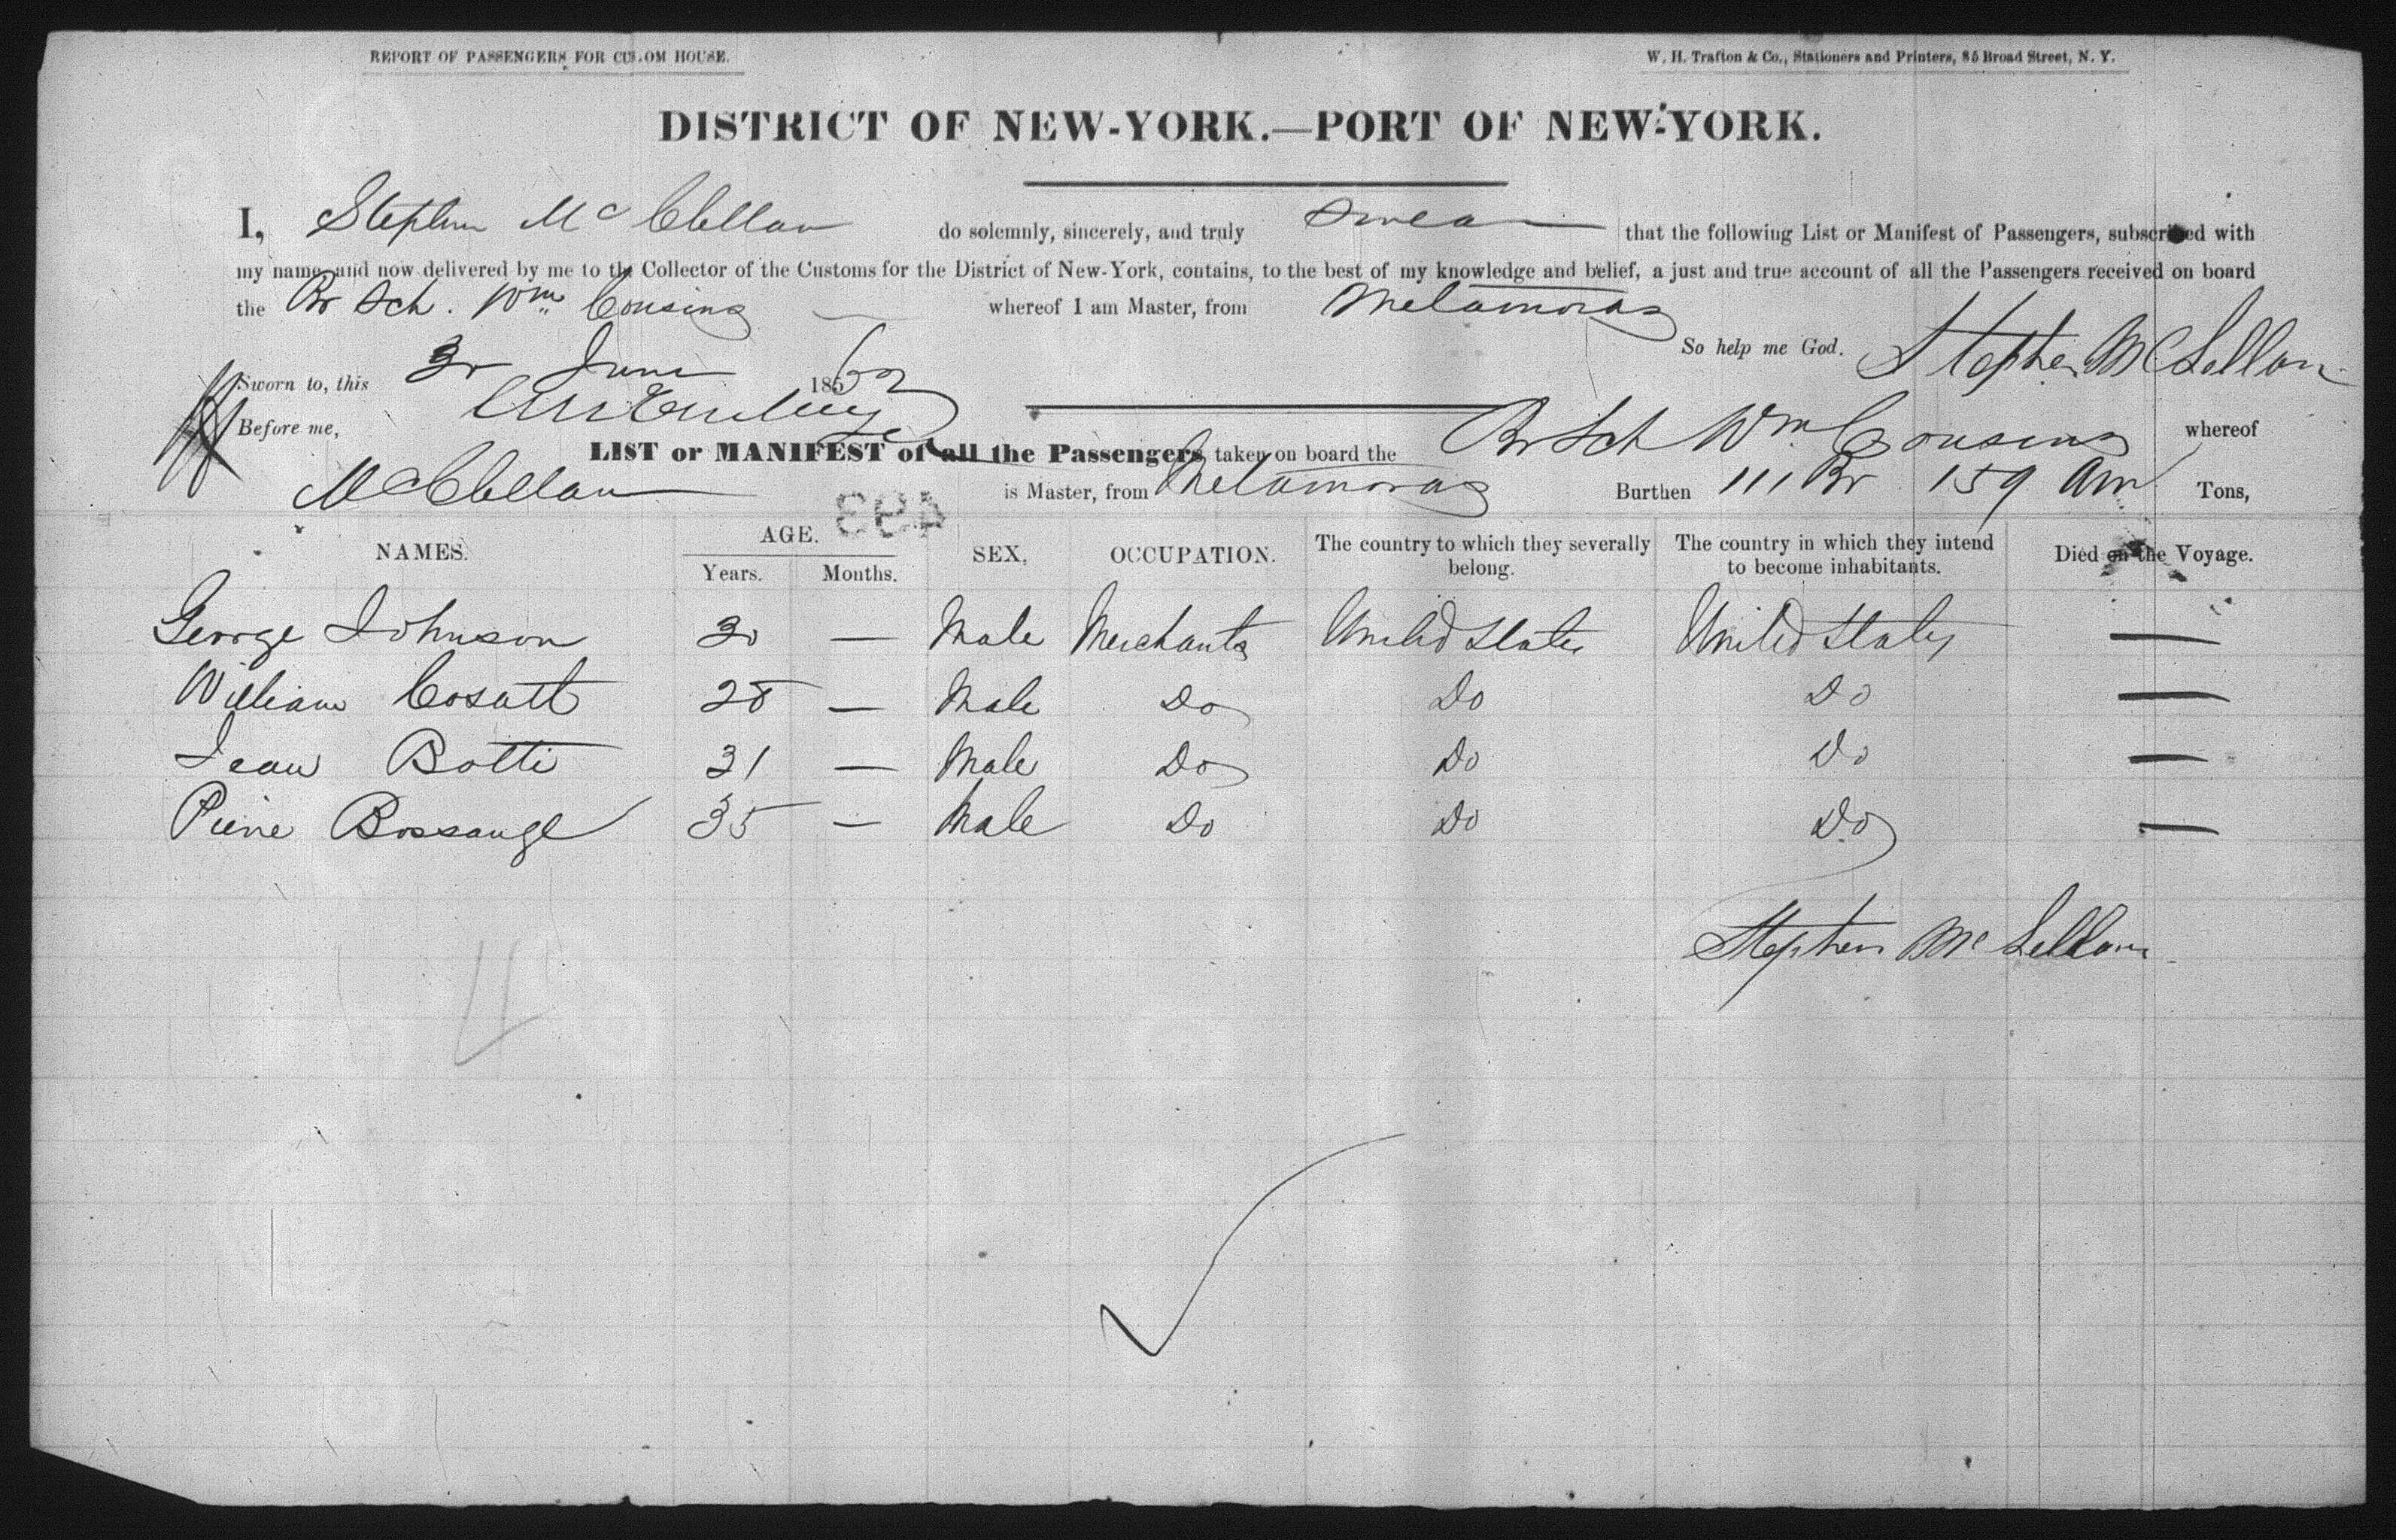 REPORT OF PASSENGERS FOR CUSTOM HOUSE.
W. H. Trafton & Co., Stationers and Printers, 85 Broad Street, N. Y.
DISTRICT OF NEW-YORK.—PORT OF NEW-YORK.
I, Stephen Mc Clellan do solemnly, sincerely, and truly swear that the following List or Manifest of Passengers, subscribed with
my name and now delivered by me to the Collector of the Customs for the District of New-York, contains, to the best of my knowledge and belief, a just and true account of all the Passengers received on board
the Br Sch. Wm Cousins whereof I am Master, from Metamoras
So help me God. Stephen McLellan
Sworn to, this 3r June 1862
Before me,
LIST or MANIFEST of all the Passengers taken on board the Br Sch Wm Cousins whereof
McClellan is Master, from Metamoras Burthen 111 Br 159 Am Tons,
493
NAMES. AGE. Years. Months. SEX, OCCUPATION. The country to which they severally belong. The country in which they intend to become inhabitants. Died on the Voyage.
George Johnson 30 — Male Merchants United States United States —
William Cosatt 28 — Male Do Do Do —
Jean Botti 31 — Male Do Do Do —
Pierre Bossange 35 — Male Do Do Do —
Stephen Mc Lellan